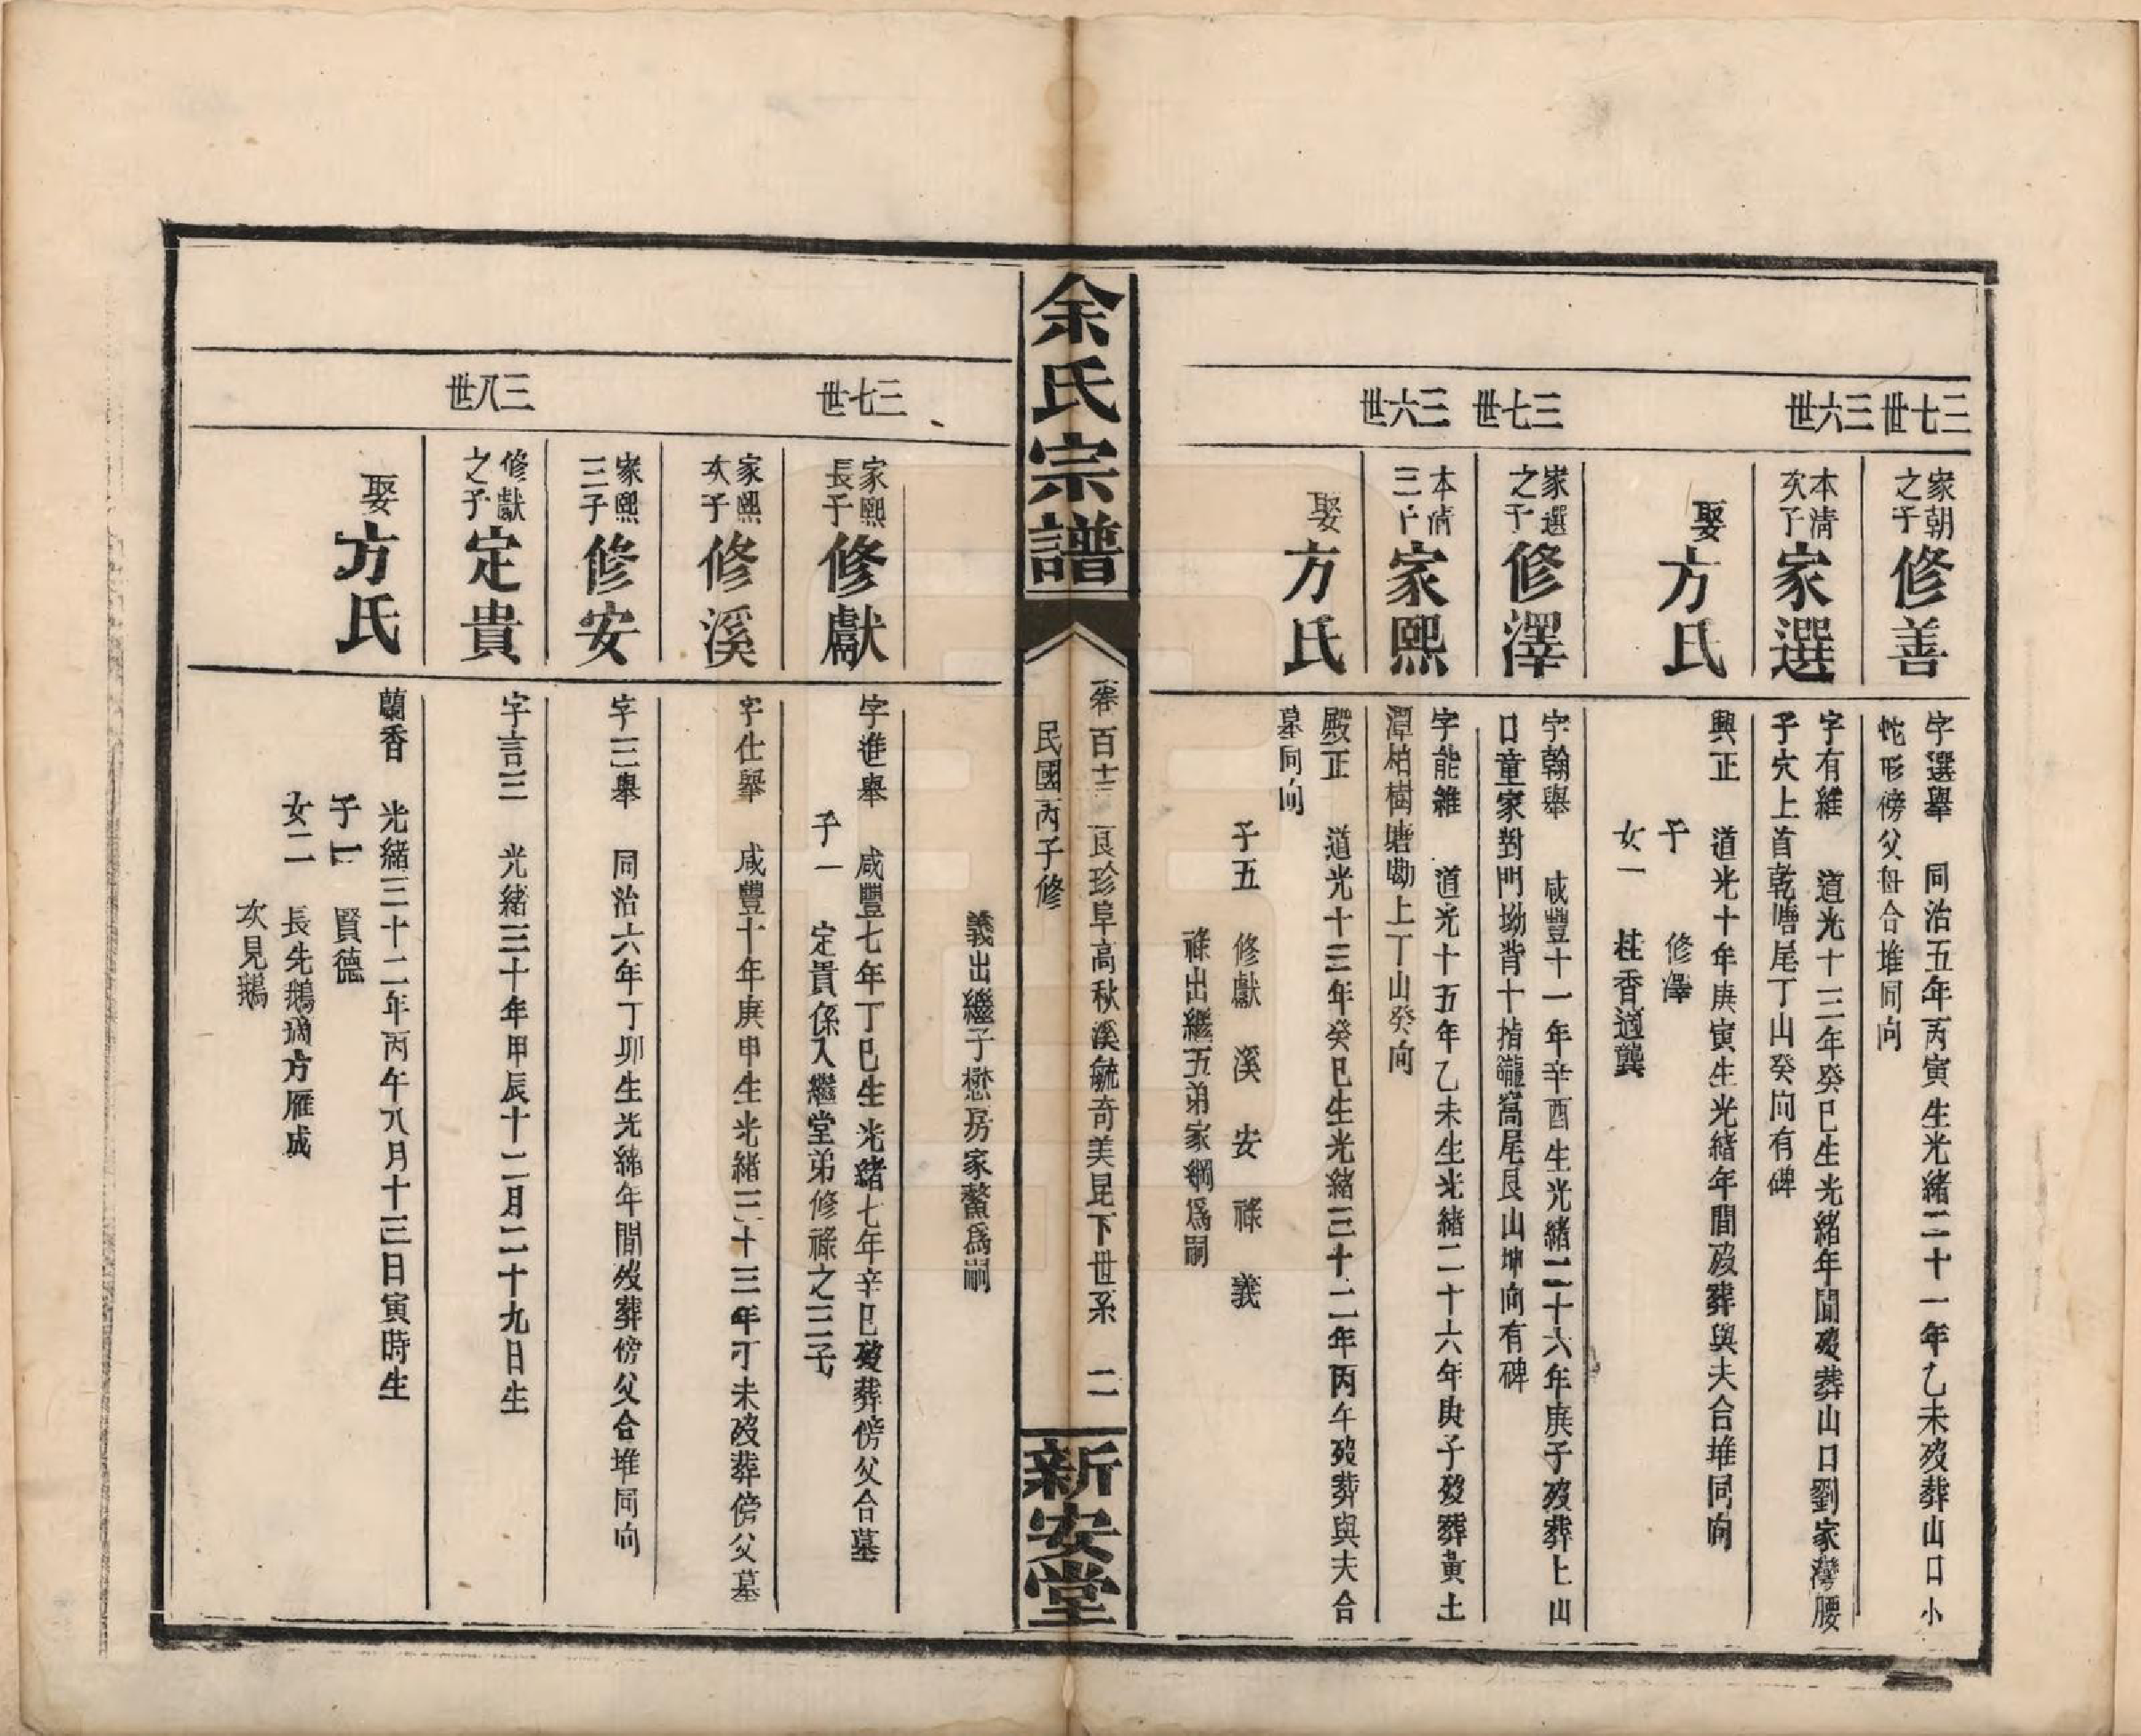 三七世
家朝
之子
修善
字選舉 同治五年丙寅生光緒二十一年乙未歿葬山口小
蛇形傍父母合堆同向
三六世
本清
次子
家選
字有維 道光十三年癸巳生光緒年間歿葬山口劉家灣腰
子穴上首乾塘尾丁山癸向有碑
娶
方氏
興正 道光十年庚寅生光緒年間歿葬與夫合堆同向
子 修澤
女一 桂香適龔
三七世
家選
之子
修澤
字翰舉 咸豐十一年辛酉生光緒二十六年庚子歿葬上山
口童家對門坳背十指隴窩尾艮山坤向有碑
三六世
本清
三子
家熙
字能維 道光十五年乙未生光緒二十六年庚子歿葬黃土
潭柏樹塘嘞上丁山癸向
娶
方氏
殿正 道光十三年癸巳生光緒三十二年丙午歿葬與夫合
墓同向
子五 修獻 溪 安 祿 義
祿出繼五弟家綱爲嗣
余氏宗譜
卷百十三 良珍阜高秋溪毓奇美昆下世系 二
民國丙子修
新安堂
義出繼子懋房家鰲爲嗣
三七世
家熙
長子
修獻
字進舉 咸豐七年丁巳生光緒七年辛巳歿葬傍父合墓
子一 定貴係入繼堂弟修祿之三子
家熙
次子
修溪
字仕舉 咸豐十年庚申生光緒三十三年丁未歿葬傍父墓
家熙
三子
修安
字三舉 同治六年丁卯生光緒年間歿葬傍父合堆同向
三八世
修獻
之子
定貴
字言三 光緒三十年甲辰十二月二十九日生
娶
方氏
蘭香 光緒三十二年丙午八月十三日寅時生
子一 賢德
女二 長先鵝適方雁成
次見鵝